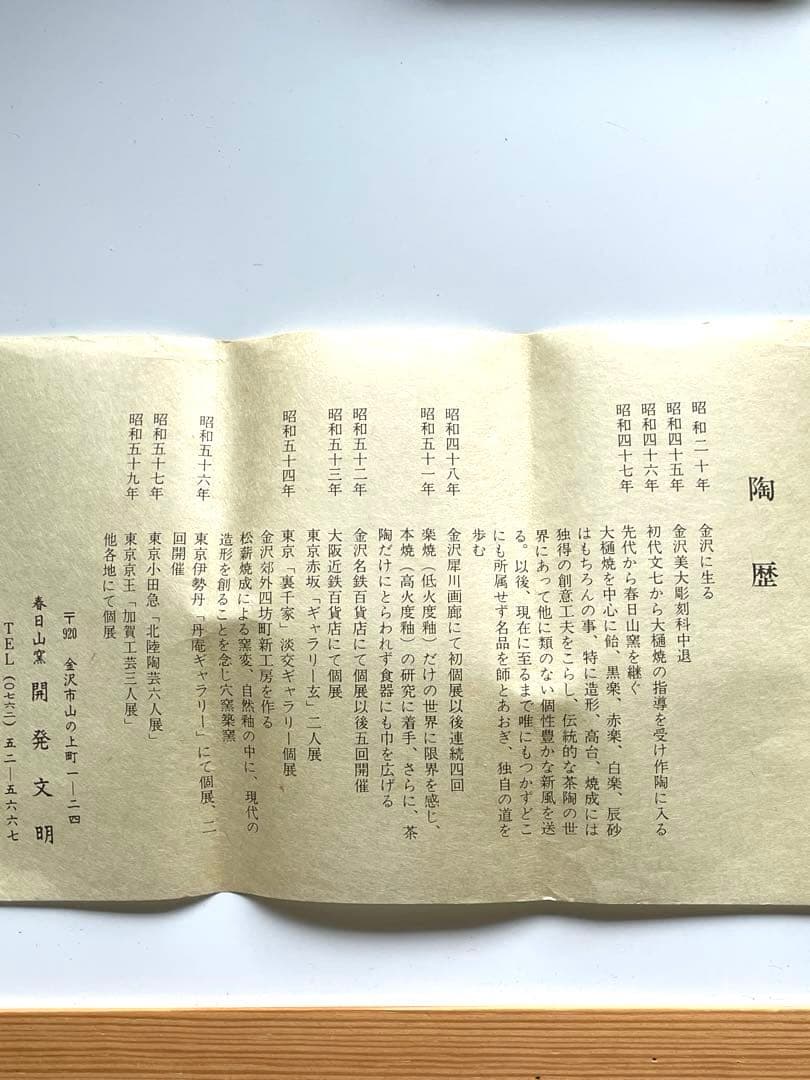 陶歴
昭和二十年　金沢に生る
昭和四十五年　金沢美大彫刻科中退
昭和四十六年　初代文七から大樋焼の指導を受け作陶に入る
昭和四十七年　先代から春日山窯を継ぐ
大樋焼を中心に飴、黒楽、赤楽、白楽、辰砂
はもちろんの事、特に造形、高台、焼成には
独得の創意工夫をこらし、伝統的な茶陶の世
界にあって他に類のない個性豊かな新風を送
る。以後、現在に至るまで唯にもつかずどこ
にも所属せず名品を師とあおぎ、独自の道を
歩む
昭和四十八年　金沢犀川画廊にて初個展以後連続四回
昭和五十一年　楽焼（低火度釉）だけの世界に限界を感じ、
本焼（高火度釉）の研究に着手、さらに、茶
陶だけにとらわれず食器にも巾を広げる
昭和五十二年　金沢名鉄百貨店にて個展以後五回開催
昭和五十三年　大阪近鉄百貨店にて個展
東京赤坂「ギャラリー玄」二人展
昭和五十四年　東京「裏千家」淡交ギャラリー個展
金沢郊外四坊町新工房を作る
松薪焼成による窯変、自然釉の中に、現代の
造形を創ることを念じ穴窯築窯
昭和五十六年　東京伊勢丹「丹庵ギャラリー」にて個展、二
回開催
昭和五十七年　東京小田急「北陸陶芸六人展」
昭和五十九年　東京京王「加賀工芸三人展」
他各地にて個展
〒920　金沢市山の上町一―二四
春日山窯　開発文明
TEL（〇七六二）五二―五六六七